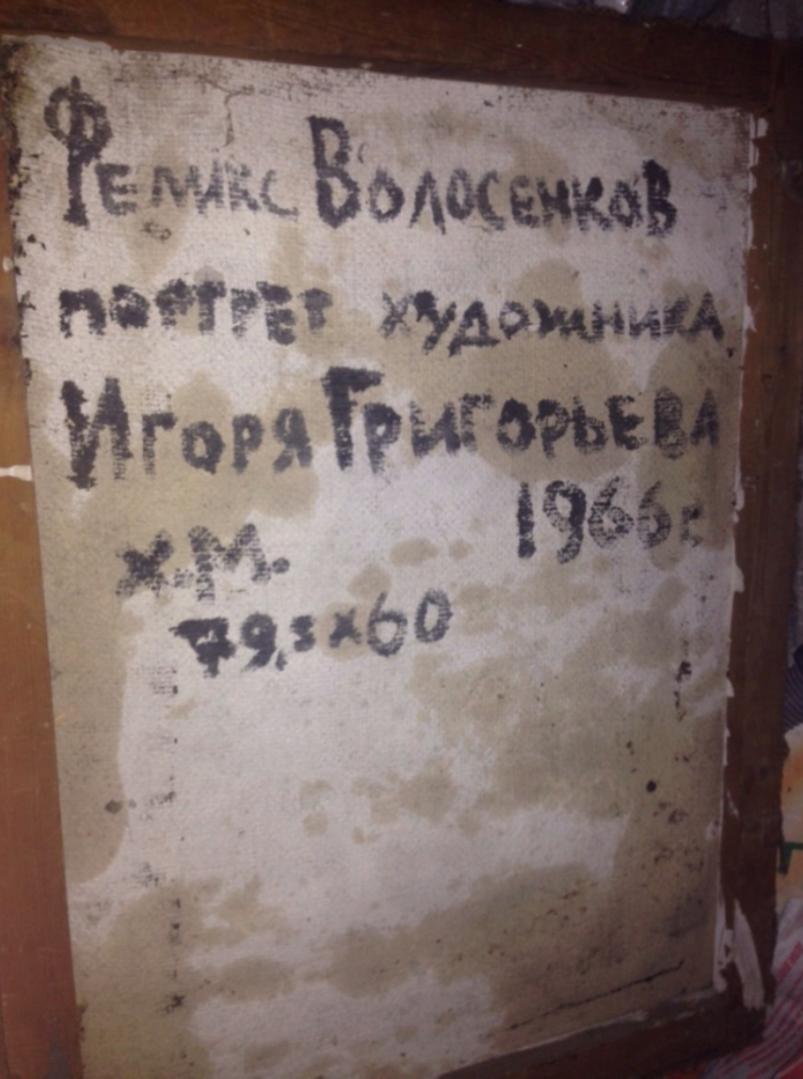 Феликс Волосенков
портрет художника
Игоря Григорьева
1966г
х.м.
79,5х60